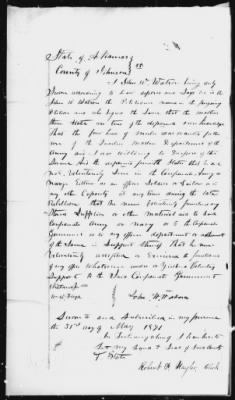 State of Arkansas
County of Johnson } SS
I John W. Watson being duly
Sworn according to law depose and Say he is the
John W Watson the Petitioner named in the foregoing
Petition and who signed the Same that the matters
therein Stated are true of the deponents own knowledge
That the four head of mules was
of the Quarter Master Department of the
Army and
Same And the deponent further States that he did
not, Voluntarily Serve in the Confederate Army or
Navy Either as an officer Soldier or Sailor or in
any other Capacity at any time during the late
Rebellion that he never Voluntarily furnished any
Stores Supplies or other material aid to Said
Confederate Army or Navy or to the Confederate
Government or to any officer department or adherent
of the Same in Support thereof That he never
Voluntarily accepted or Exercised the functions
of any office whatsoever under or yielded a Voluntary
Support to the Said Confederate Government
John W. Watson
Sworn to and Subscribed in my presence
this 31st day of May 1871
In testimony whereof I hereunto
Set my hand & Seal of Said Court
& State
Robert H. Clerk